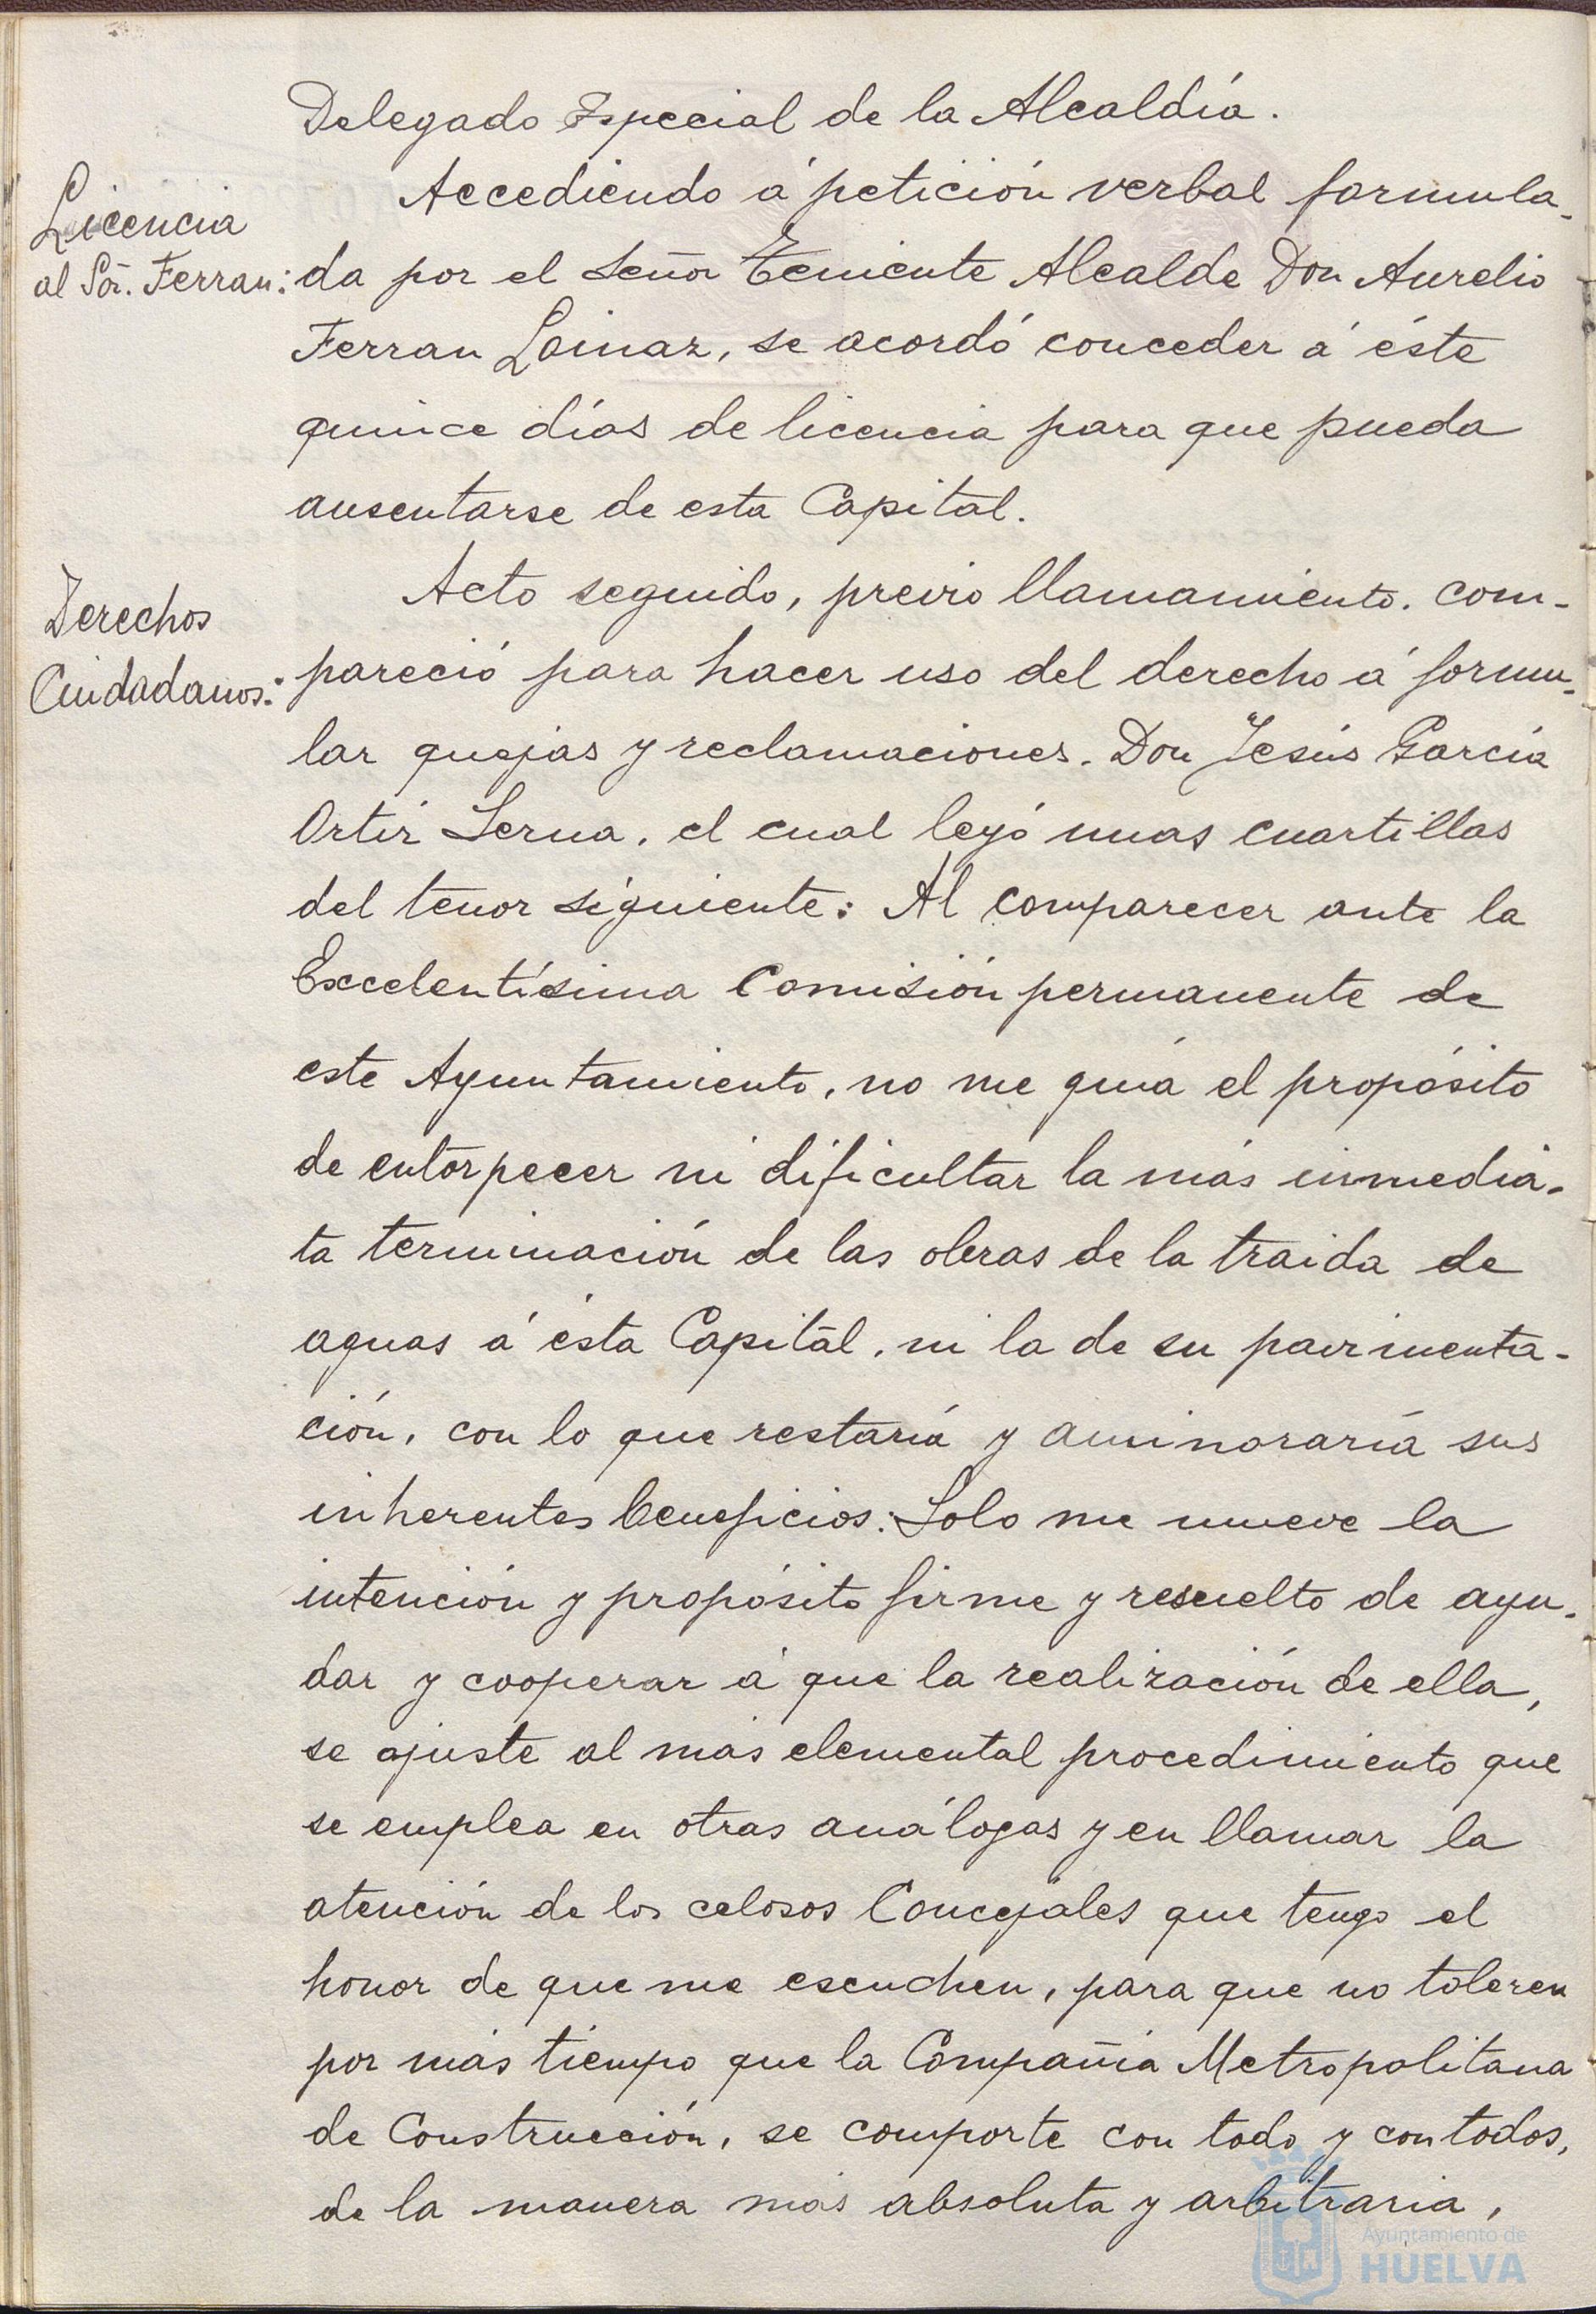 Delegado Especial de la Alcaldía.
Licencia
al Sor. Ferran:
Accediendo á petición verbal formula-
da por el señor Teniente Alcalde Don Aurelio
Ferran Loinaz, se acordó conceder á éste
quince días de licencia para que pueda
ausentarse de esta Capital.
Derechos
Ciudadanos:
Acto seguido, previo llamamiento, com-
pareció para hacer uso del derecho á formu-
lar quejas y reclamaciones. Don Jesús García
Ortiz Serna, el cual leyó unas cuartillas
del tenor siguiente: Al comparecer ante la
Excelentísima Comisión permanente de
este Ayuntamiento, no me guía el propósito
de entorpecer ni dificultar la más inmedia-
ta terminación de las obras de la traida de
aguas á ésta Capital, ni la de su pavimenta-
ción, con lo que restaría y aminoraría sus
inherentes beneficios: Solo me mueve la
intención y propósito firme y resuelto de ayu-
dar y cooperar á que la realización de ella,
se ajuste al más elemental procedimiento que
se emplea en otras análogas y en llamar la
atención de los celosos Concejales que tengo el
honor de que me escuchen, para que no toleren
por más tiempo que la Compañía Metropolitana
de Construcción, se comporte con todo y con todos,
de la manera más absoluta y arbitraria,
Ayuntamiento de
HUELVA